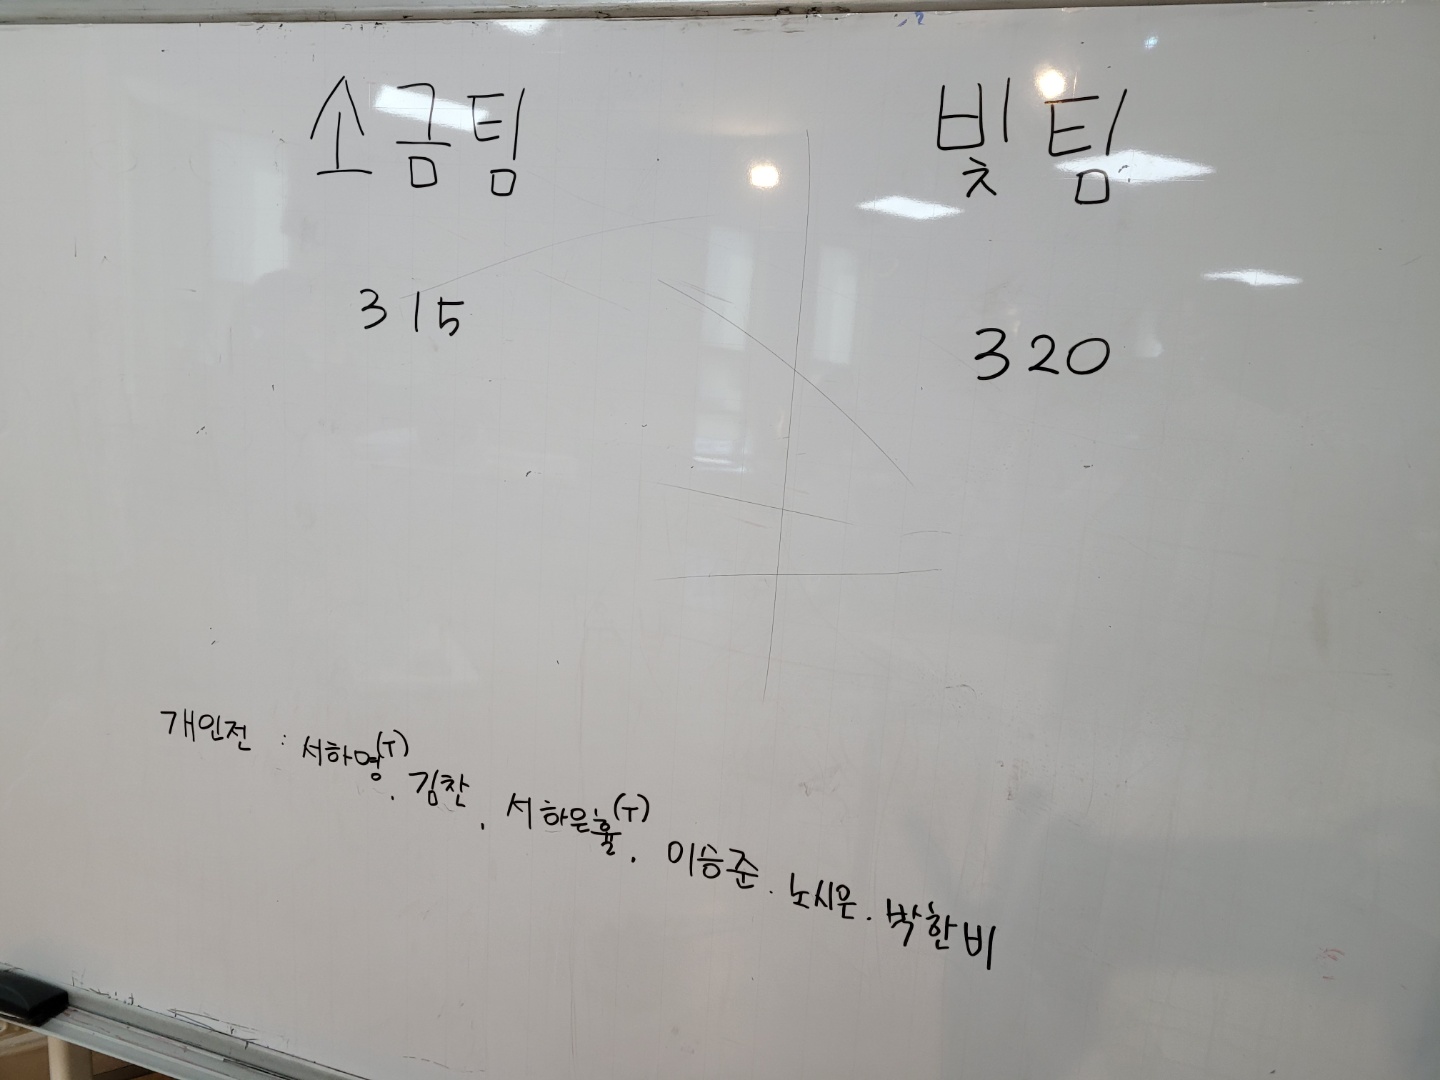 소금팀 빛팀
315 320
개인전 : 서하영(T). 김찬. 서하은휼(T). 이승준. 노시은. 박한비